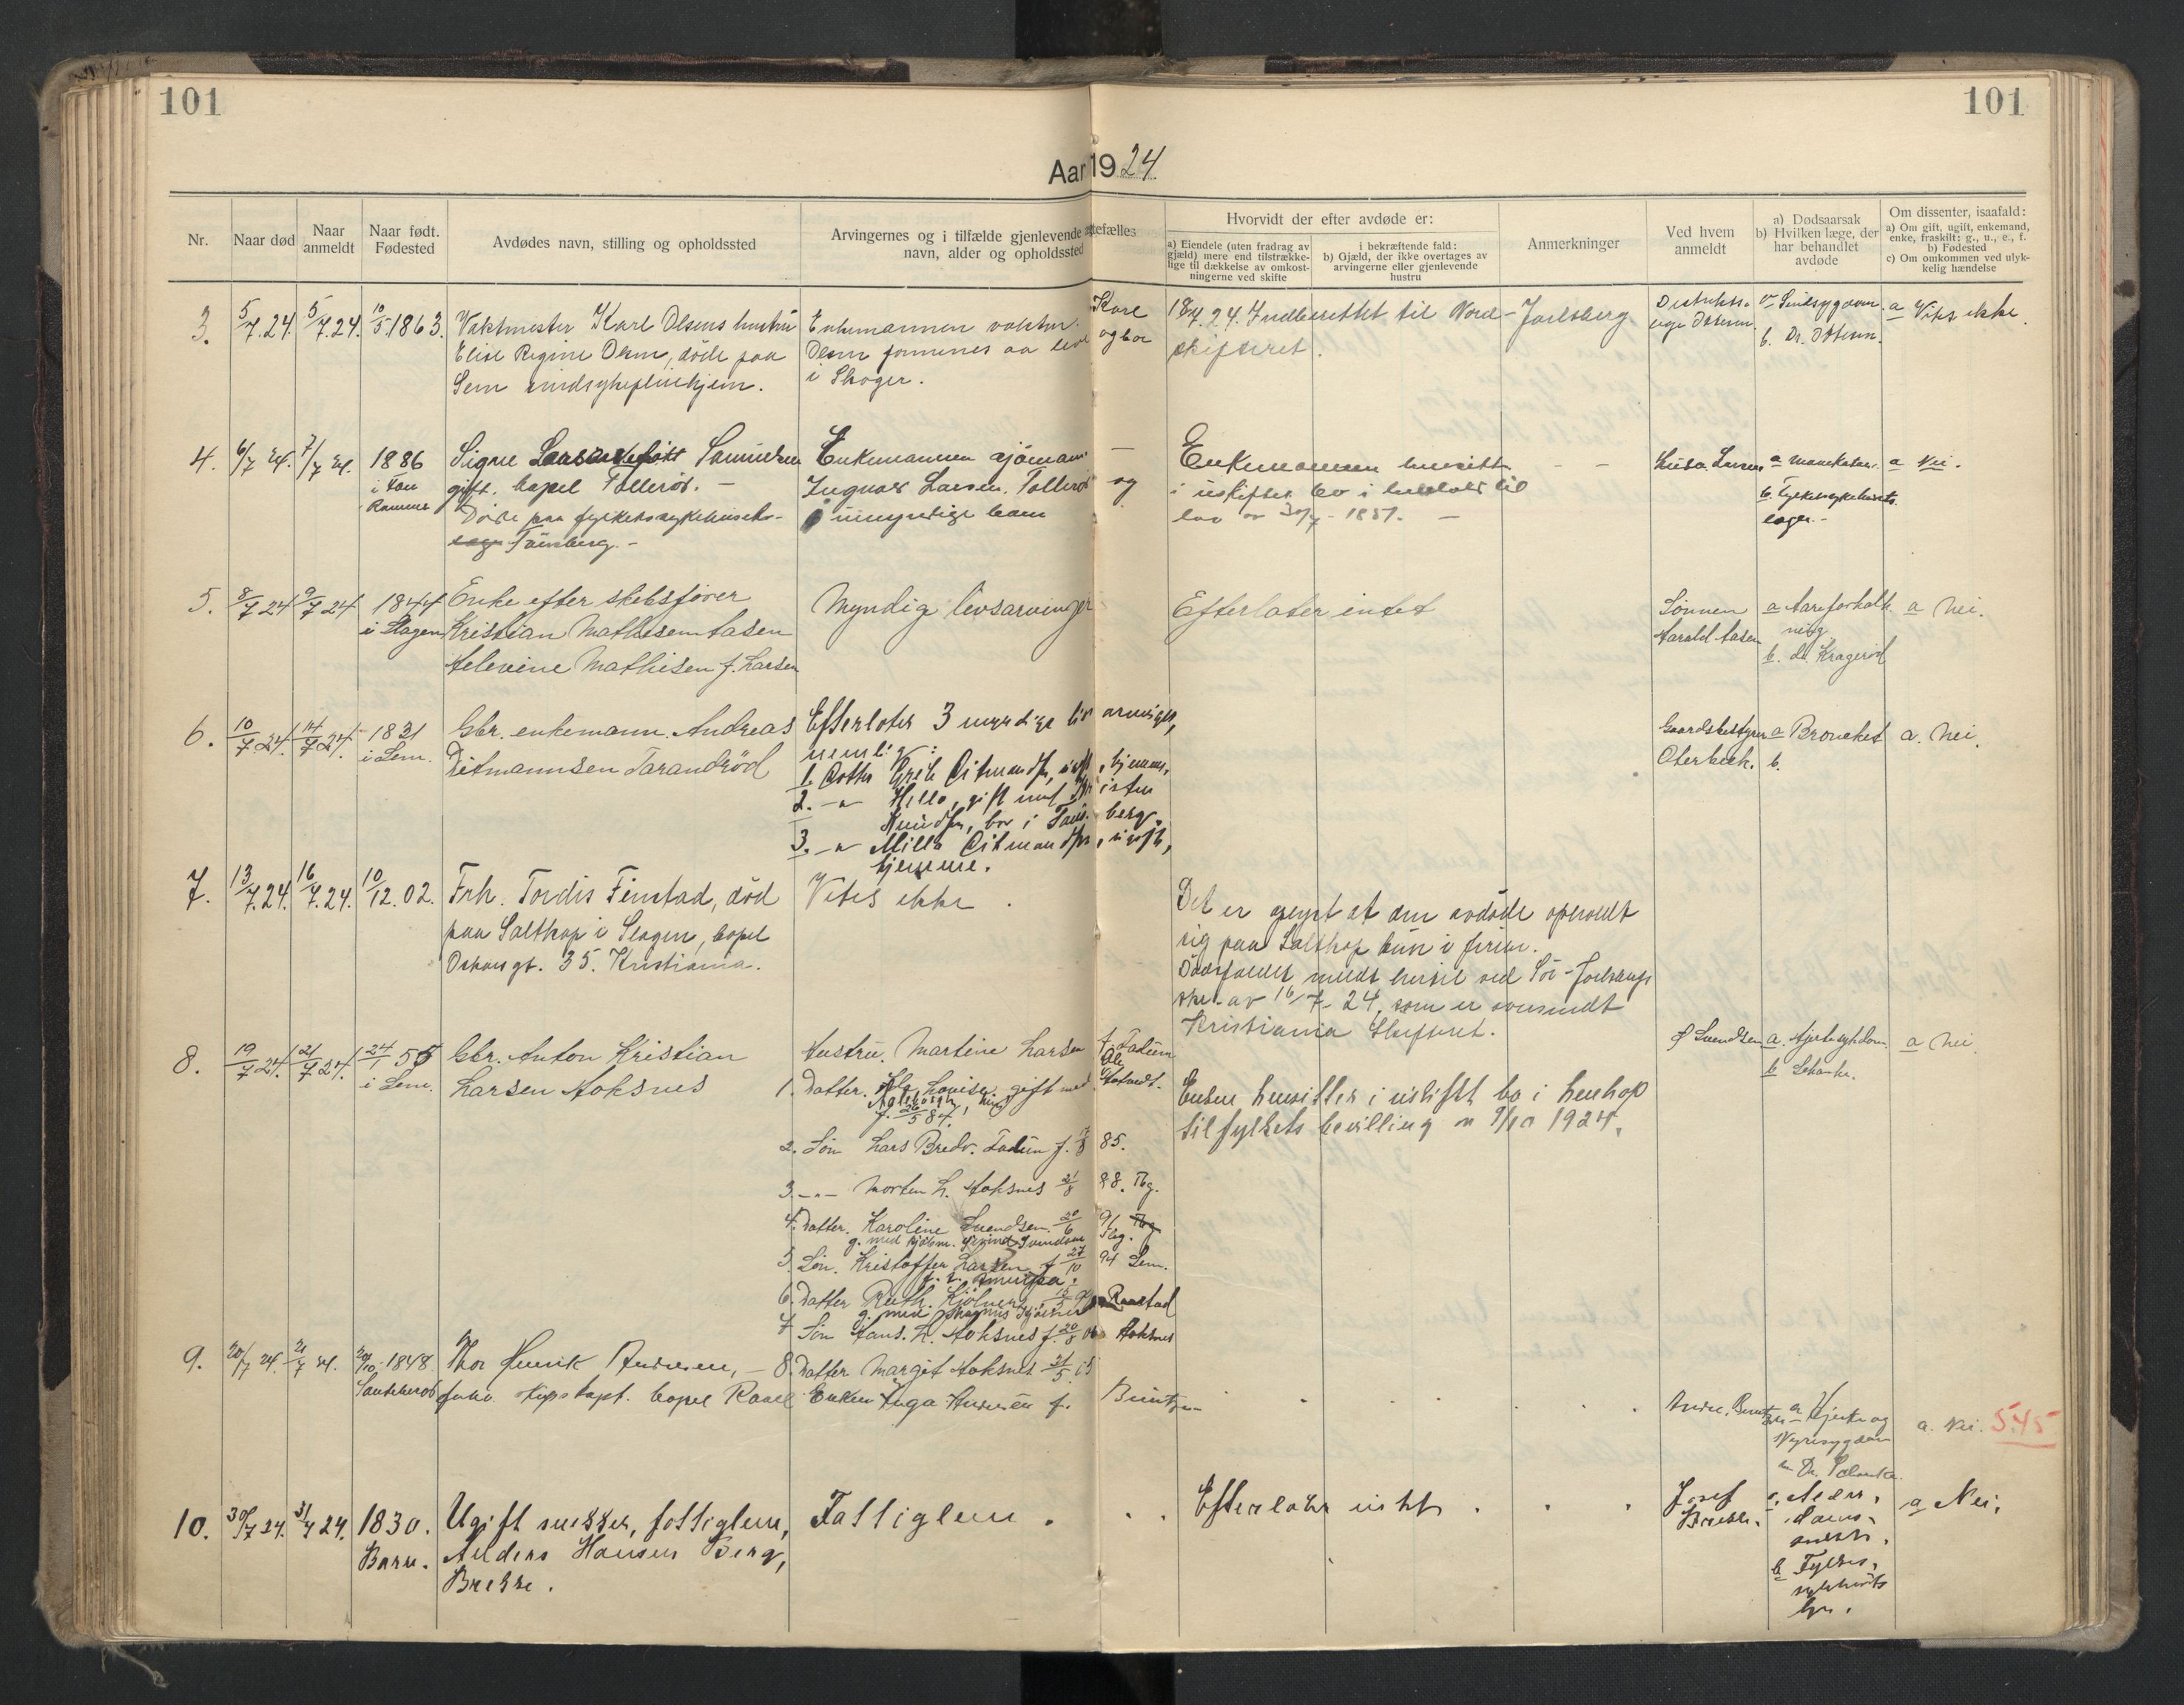 101
101
Aar 1924.
Nr.
Naar død
Naar anmeldt
Naar født. Fødested
Avdødes navn, stilling og opholdssted
Arvingernes og i tilfælde gjenlevende
navn, alder og opholdssted
tefælles
Hvorvidt der efter avdøde er:
a) Eiendele (uten fradrag av gjæld) mere end tilstrækkelige til dækkelse av omkostningerne ved skifte
i bekræftende fald:
b) Gjæld, der ikke overtages av arvingerne eller gjenlevende hustru
Anmerkninger
Ved hvem anmeldt
a) Dødsaarsak
b) Hvilken læge, der har behandlet avdøde
Om dissenter, isaafald:
a) Om gift, ugift, enkemand, enke, fraskilt: g., u., e., f.
b) Fødested
c) Om omkommen ved ulykkelig hændelse
3. 5/7.24. 5/7.24. 10/5 1863.
Vaktmester Karl Olsens hustru
Elise Regine Olsen, døde paa
Sem sindsykepleiehjem.
Enkemannen vaktm. Karl
Olsen formenes aa leve og bor
i Skoger.
18/7.24. Indberettet til Nord-Jarlsberg
skifteret.
a Sindsygdom.
b. Dr.
a Vites ikke.
4. 6/7 24. 7/7 24. 1886
i
Ramnes
Signe Samuelsen
gift. bopel Tolleröd. -
Døde paa fylkessykehuset
Tönsberg. -
Enkemannen sjömann
Ingvar Larsen, Tolleröd og
umyndige barn
Enkemannen hensitter
i uskiftet bo i henhold til
lov av 30/7 - 1851. -
Larsen
a
b. Fylkessykehusets
læge. -
a Nei.
5. 8/7 24 9/7 24 1844
i Slagen
Enke efter skibsfører
Kristian Mathisen Aasen
Helevine Mathisen f. Larsen
Myndig livsarvinger
Efterlater intet
Sönnen
Harald Aasen
a Aareforkalkning
b. dr. Krageröd
a Nei.
6. 10/7 24. 14/7 24. 1831
i Sem.
Gbr. enkemann. Andreas
Ditmannsen Tarandröd
Efterlater 3 myndige livsarvinger,
nemlig:
1. Datter Ditmandsen, ugift, hjemme,
2. -"- Hella, gift med
Knudsen, bor i Tønsberg.
3. -"- Milla Ditmandsen, ugift,
hjemme.
Gaardsbestyrer
Oterbech.
a Bronchit
b.
a. Nei.
7. 13/7.24. 16/7.24. 10/12.02.
Frk. Tordis Finstad, död
paa Salthop i Slagen, bopel
Oskarsgt. 35. Kristiania.
Vites ikke.
Det er at den avdöde opholdt
sig paa Salthop kun i ferien.
Dödsfaldet meldt hertil ved Sör-Jarlsbergs
skr. av 16/7-24, som er oversendt
Kristiania Skifteret.
8. 19/7 24. 21/7 24. 24/1 55
i Sem.
Gbr. Anton Kristian
Larsen Aoksnes
Hustru. Martine Larsen f. Tadum
1. Datter. Lovise gift med
f. 26/5 84.
2. Sön Lars Bredv. Tadum f. 17/8 85.
3. -"- Morten L. Aoksnes 21/8 88. Tbg.
4. Datter. Karoline Svendsen 20/6 91 Tbg.
g. med Svendsen
5. Sön. Kristoffer Larsen f 27/10 94 Sem.
f. t. Amerika.
6. Datter Ruth. Kjölner Raastad
g. med Magnus Kjölner
7 Sön Hans. L. Aoksnes f. 20/8 00 Aoksnes
8. Datter Margit Aoksnes 21/5
Enken hensitter i uskiftet bo i henhold
til fylkets bevilling av 9/10 1924.
Svendsen
a. Hjertesykdom.
b
a Nei
9. 20/7 24. 21/7 24. 1848.
Sandeherod
Thor Henrik Andersen, -
skipskapt. bopel Rauel
Enken Inga Andersen f. Buntzen
a Hjerte og
Nyresygdom
Dr.
a. Nei. 545
10. 30/7 24. 31/7 24. 1830.
Ugift snekker, fattiglem,
Anders Hansen Berg,
Brekke.
Fattiglem.
Efterlater intet.
Josef
Brekke.
a. Alderdomssvækkelse.
b Fylkessykehusets
a Nei.